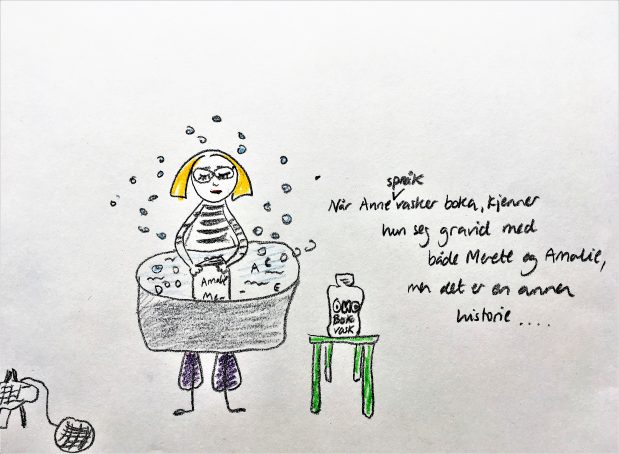 språk
Når Anne vasker boka, kjenner
hun seg gravid med
både Merete og Amalie,
men det er en annen
historie ....
A E
D E
Amalie
Me-
Bok
vask